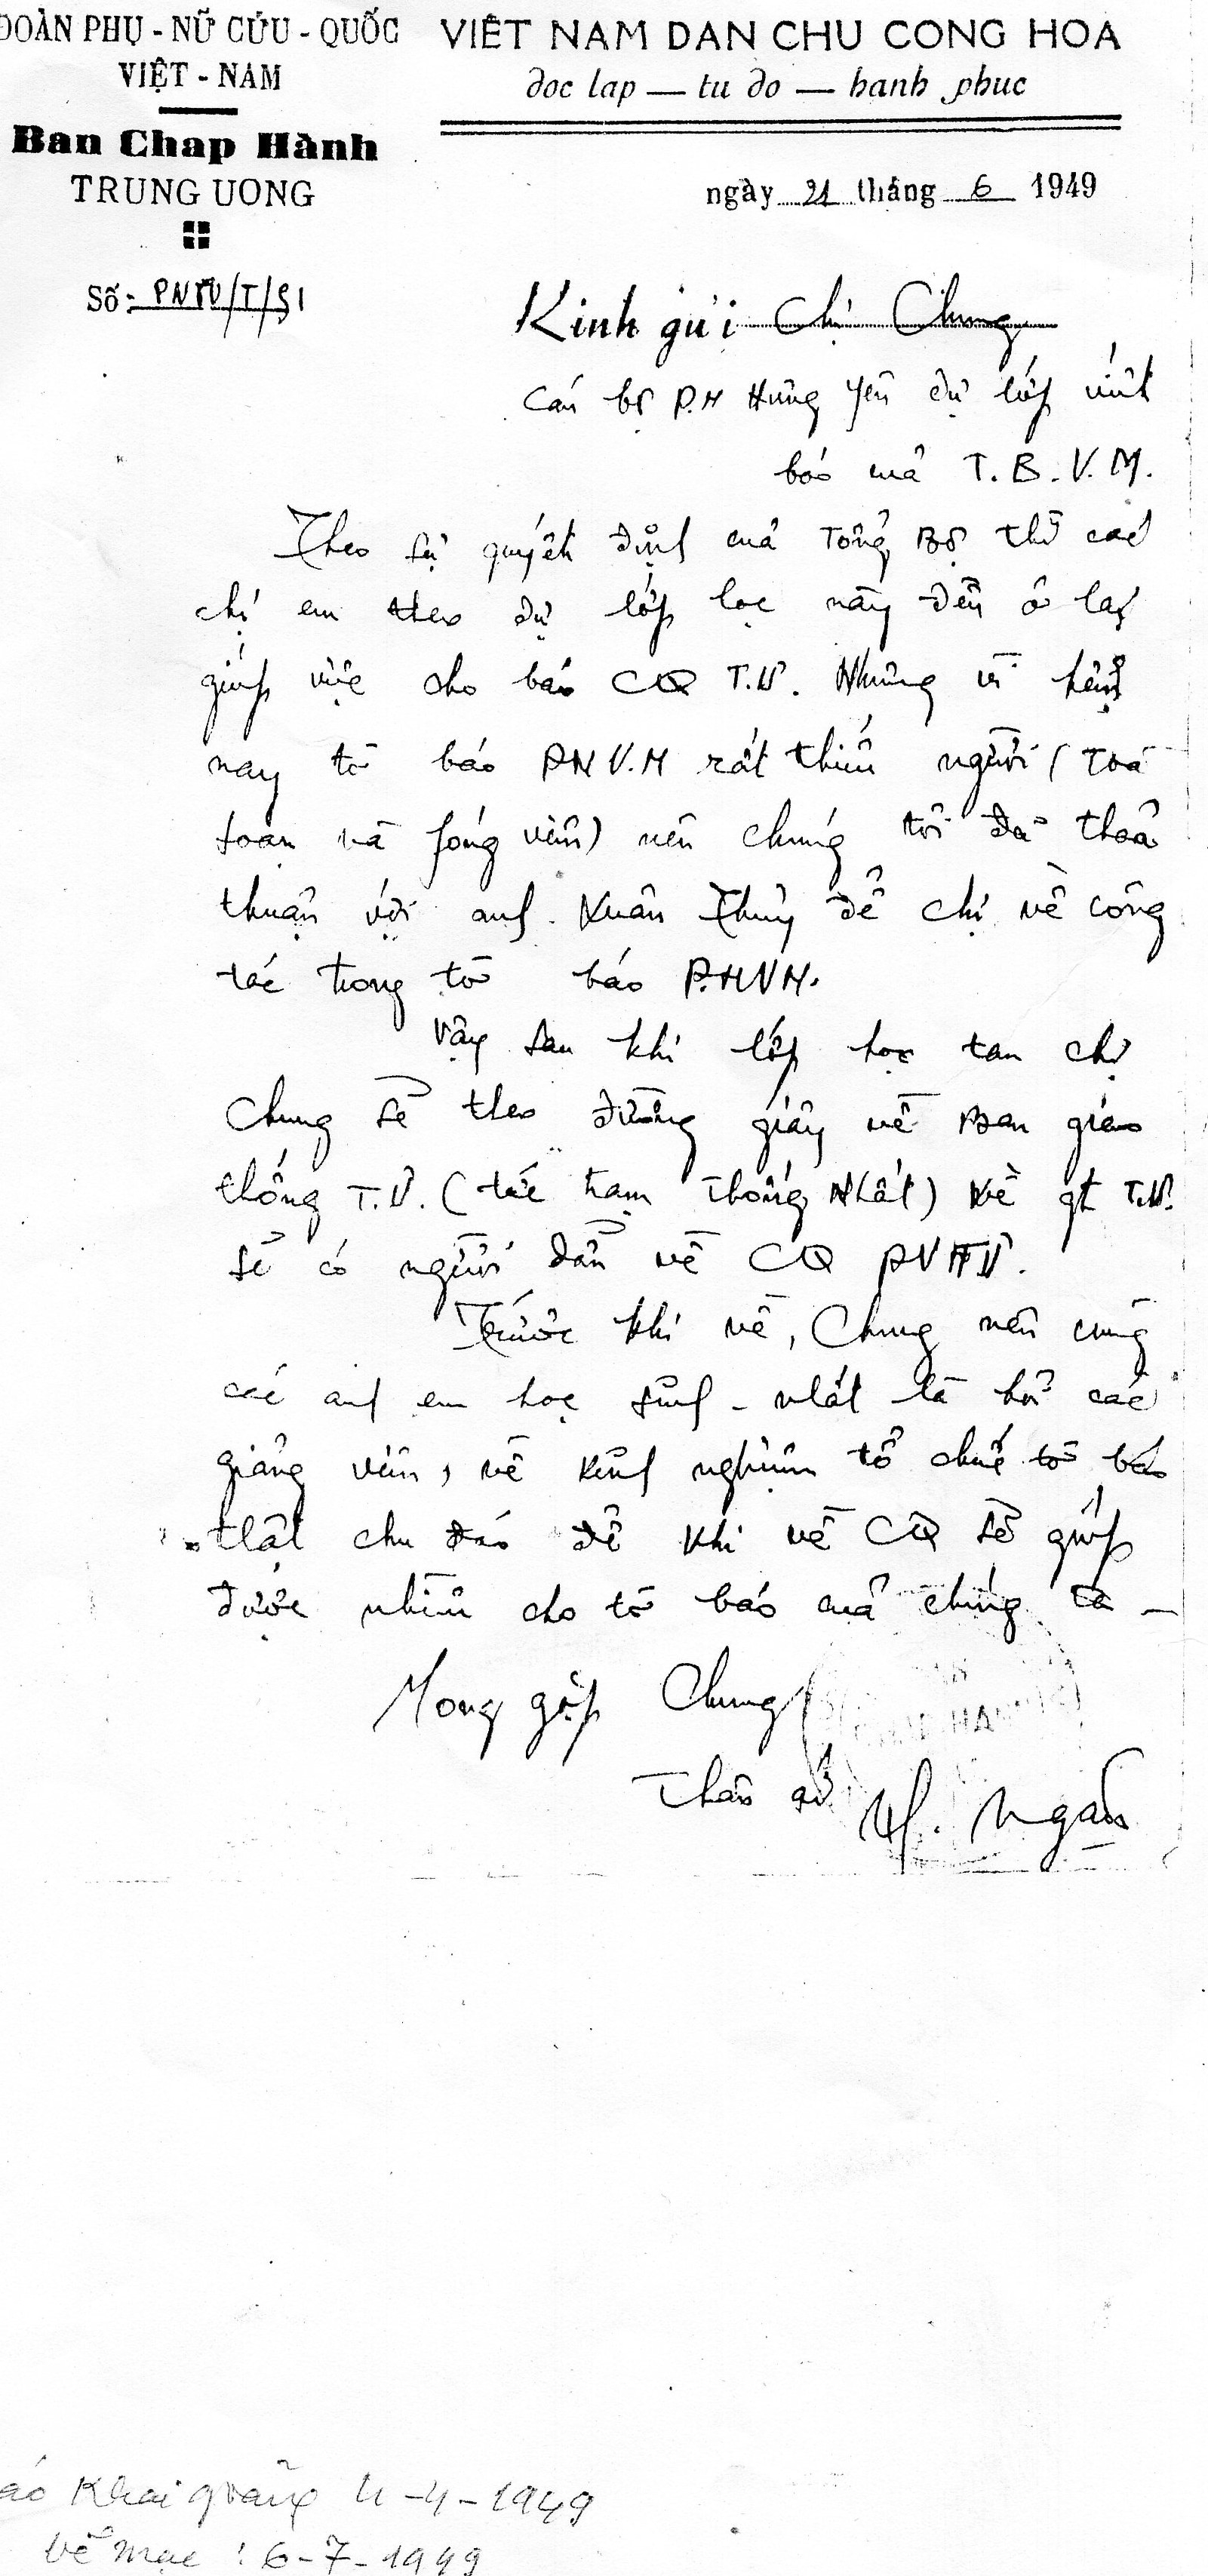 ĐOÀN PHỤ - NỮ CỨU - QUỐC
VIỆT - NAM
Ban Chap Hành
TRUNG UONG
Số: PNTU/T/51
VIÊT NAM DAN CHU CONG HOA
doc lap — tu do — hanh phuc
ngày 21 tháng 6 1949
Kinh gửi Chị Chung
Cán bộ P.N Hưng Yên dự lớp viết
báo của T.B.V.M.
Theo sự quyết định của Tổng Bộ thì các
chị em theo dự lớp học này đều ở lại
giúp việc cho báo CQ T.Ư. Nhưng vì hện
nay tờ báo PNV.N rất thiếu người (Toà
soạn và fóng viên) nên chúng tôi đã thoả
thuận với anh Xuân Thuỷ để chị về công
tác trong tờ báo P.NVN.
Vậy sau khi lớp học tan chị
Chung sẽ theo đường giây về Ban giao
thông T.Ư. (tức trạm Thống Nhất) Về gt T.Ư.
sẽ có người dẫn về CQ PNTƯ.
Trước khi về, Chung nên cùng
các anh em học sinh - nhất là hỏi các
giảng viên, về kinh nghiệm tổ chức tờ báo
thật chu đáo để khi về CQ sẽ giúp
được nhiều cho tờ báo của chúng ta -
Mong gặp Chung
Thân ái
Ngân
Khai giảng 4-4-1949
bế mạc : 6-7-1949